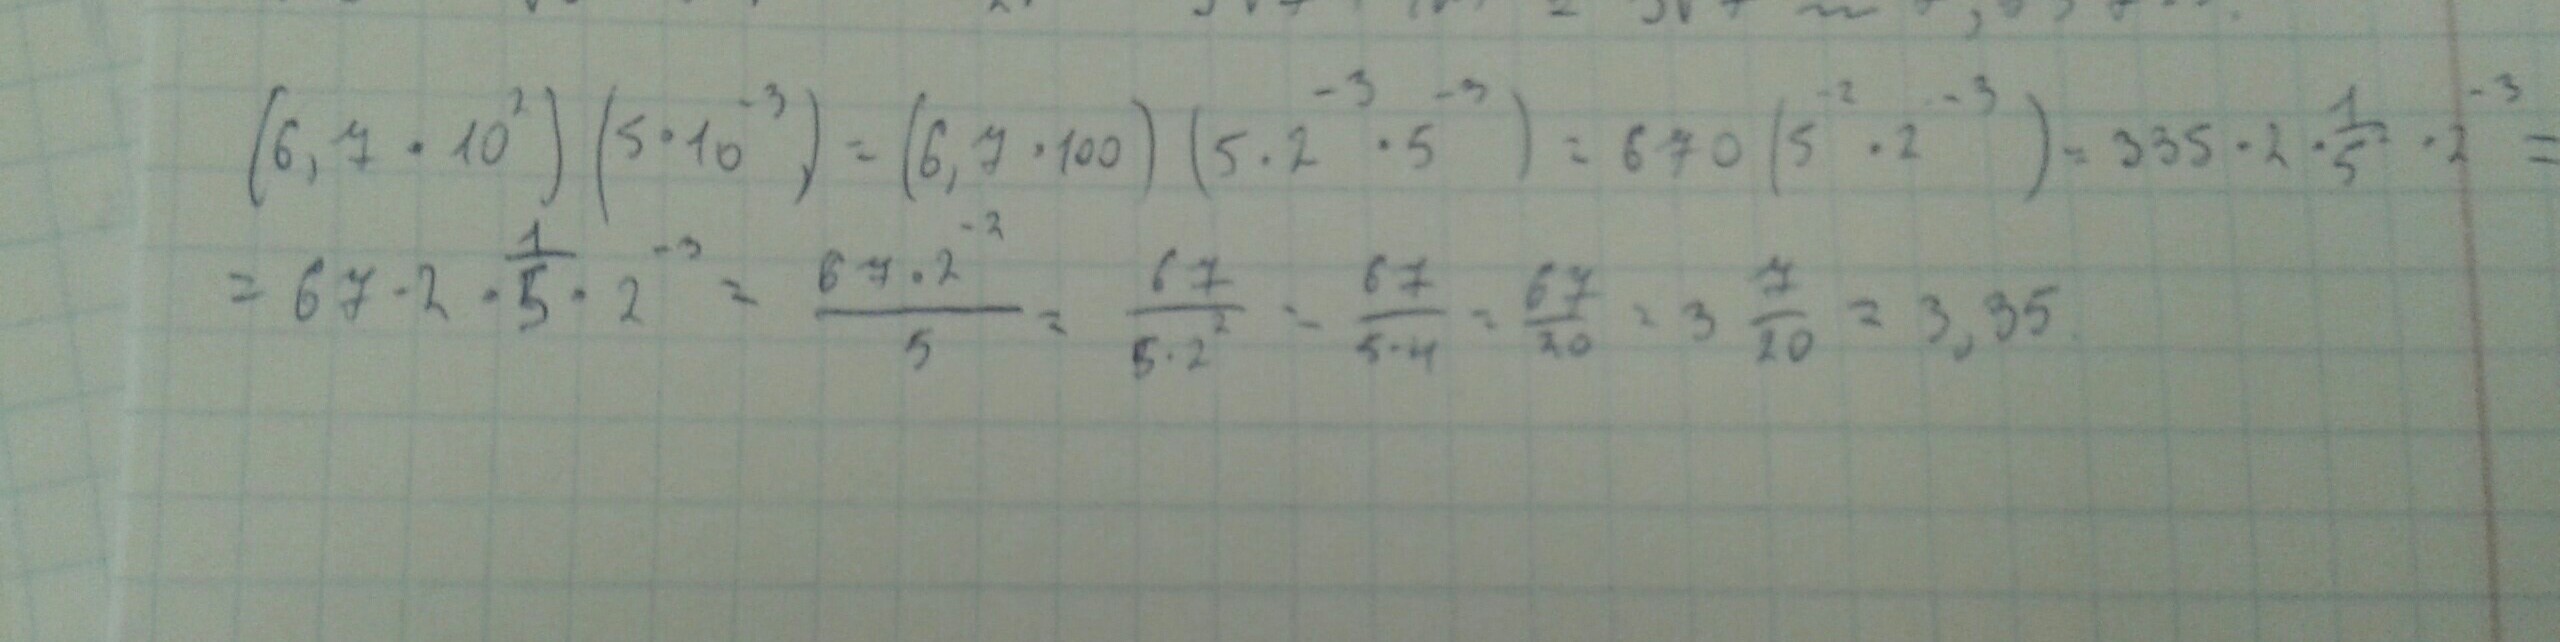 (6,7 · 10²)(5·10⁻³) = (6,7 · 100)(5 · 2⁻³ · 5⁻³) = 670(5⁻² · 2⁻³) = 335 · 2 · 1/5² · 2⁻³ =
= 67 · 2 · 1/5 · 2⁻³ = 67 · 2⁻²/5 = 67/5·2² = 67/5·4 = 67/20 = 3 7/20 = 3,35.